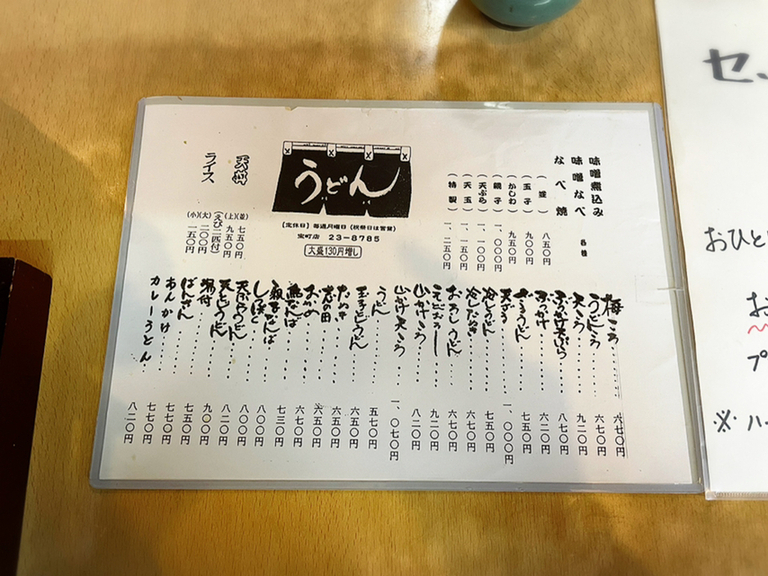 味噌煮込み
味噌なべ 各種
なべ焼
(並) 八五〇円
(玉子) 九〇〇円
(かしわ) 九五〇円
(親子) 一、〇〇〇円
(天ぷら) 一、一〇〇円
(天玉)
(特製) 一、二五〇円
うどん
[定休日]毎週月曜日(祝祭日は営業)
宝町店 23-8785
大盛130円増し
天丼 (並) 七五〇円
(上) 九五〇円
(えび二匹付)
ライス (大) 二〇〇円
(小) 一五〇円
梅ころ 六七〇円
うどんころ 六七〇円
天ころ 九二〇円
ぶっかけ天ぷら 八七〇円
ぶっかけ 六二〇円
ざるうどん 七五〇円
天ざる 一、〇〇〇円
冷しうどん 七五〇円
冷したぬき 六七〇円
おろしうどん 六七〇円
えびおろし 九二〇円
山かけころ 八二〇円
山かけ天ころ 一、〇七〇円
うどん 五七〇円
玉子とじうどん 六五〇円
たぬき 六五〇円
志の田 六五〇円
おかめ 六七〇円
鴨なんば 七三〇円
親子なんば 八〇〇円
しっぽく 八〇〇円
天ぷらうどん 八二〇円
天とじうどん 九〇〇円
湯付 七五〇円
ばんざん 七七〇円
あんかけ 七七〇円
カレーうどん 八二〇円
セッ
おひと
お
プ
※ ハー